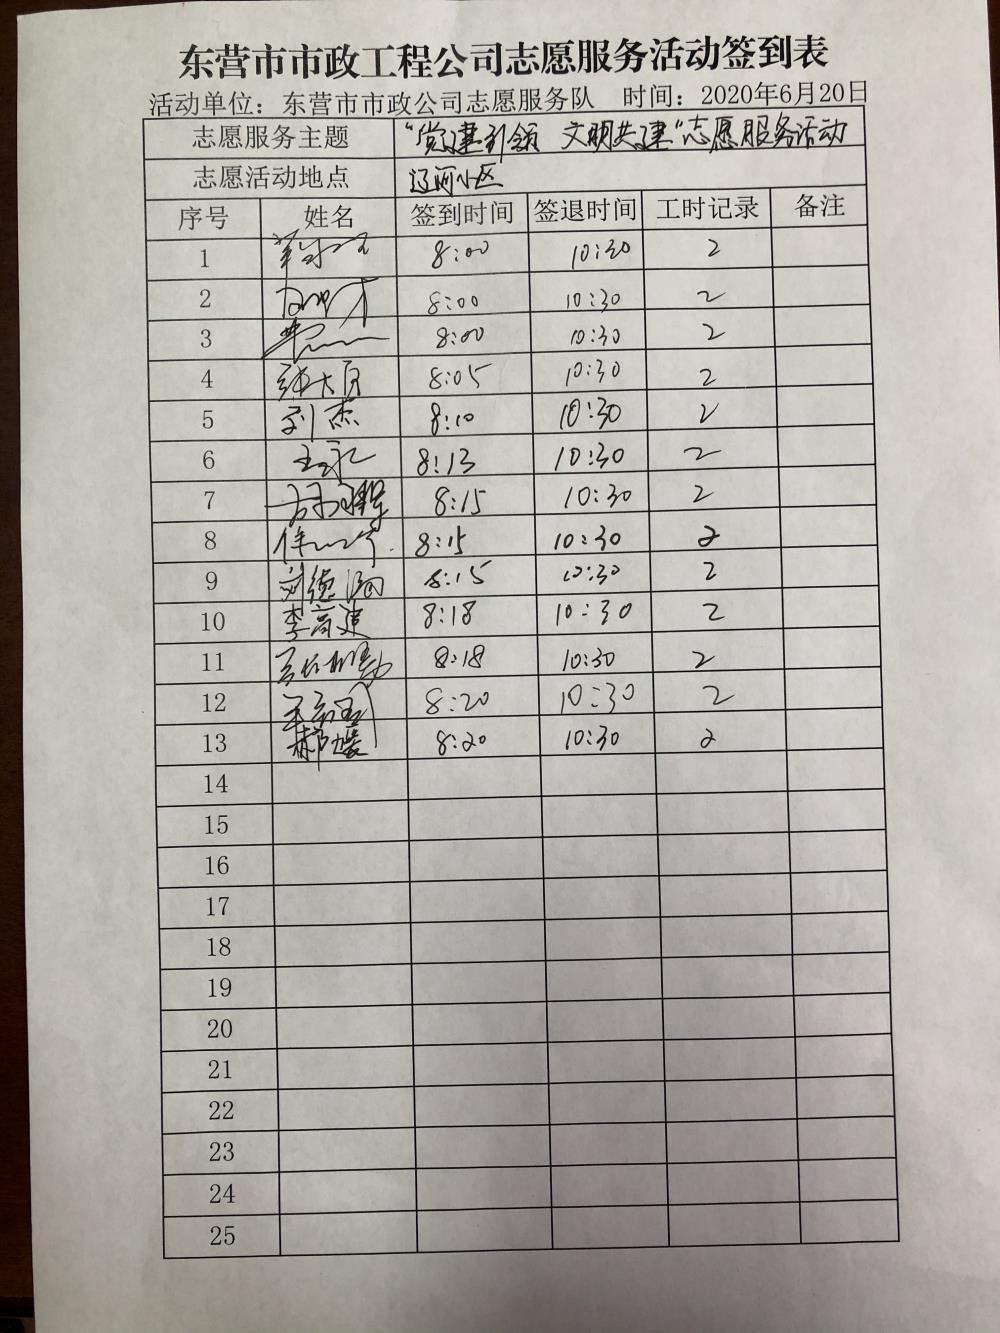 东营市市政工程公司志愿服务活动签到表
活动单位：东营市市政公司志愿服务队 时间：2020年6月20日
志愿服务主题 “党建引领 文明共建”志愿服务活动
志愿活动地点 辽河小区
序号 姓名 签到时间 签退时间 工时记录 备注
1 8:00 10:30 2
2 8:00 10:30 2
3 8:00 10:30 2
4 8:05 10:30 2
5 刘杰 8:10 10:30 2
6 8:13 10:30 2
7 8:15 10:30 2
8 8:15 10:30 2
9 刘德 8:15 10:30 2
10 李高建 8:18 10:30 2
11 8:18 10:30 2
12 8:20 10:30 2
13 郝媛 8:20 10:30 2
14
15
16
17
18
19
20
21
22
23
24
25